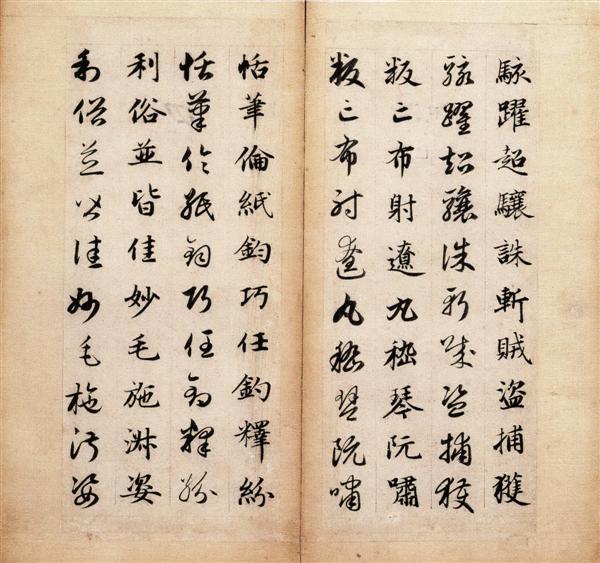 駭躍超驤誅斬賊盜捕獲
駭躍超驤誅斬賊盜捕獲
叛亡布射遼丸嵇琴阮嘯
叛亡布射遼丸嵇琴阮嘯
恬筆倫紙鈞巧任釣釋紛
恬筆倫紙鈞巧任釣釋紛
利俗並皆佳妙毛施淑姿
利俗並皆佳妙毛施淑姿